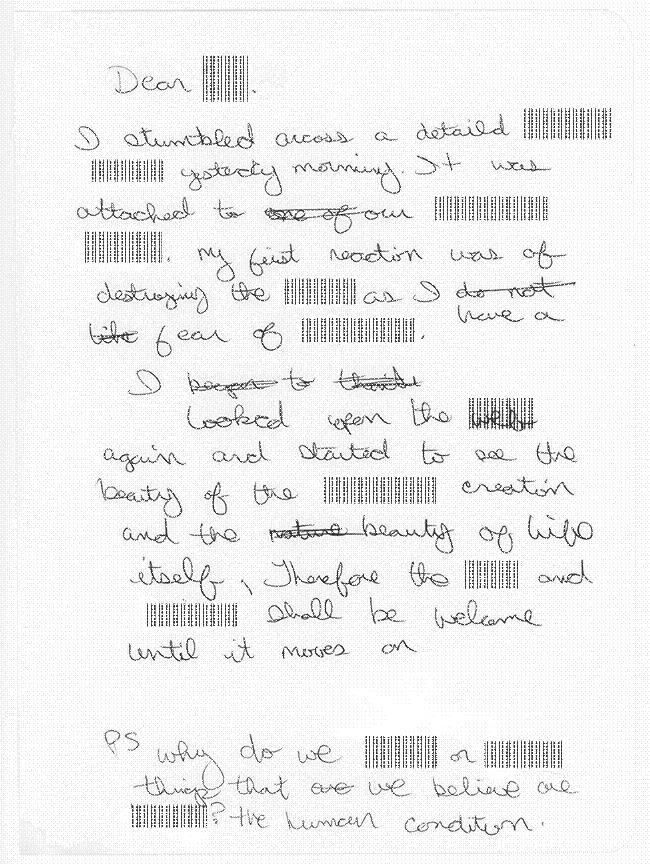 Dear .
I stumbled across a detaild
yesterdy morning. It was
attached to one of our
. My first reaction was of
destroying the as I do not
have a
like fear of .
I began to think
looked upon the web
again and started to see the
beauty of the creation
and the nature beauty of life
itself, Therefore the and
shall be welcome
until it moves on
PS why do we or
things that are we believe are
? the human condition.